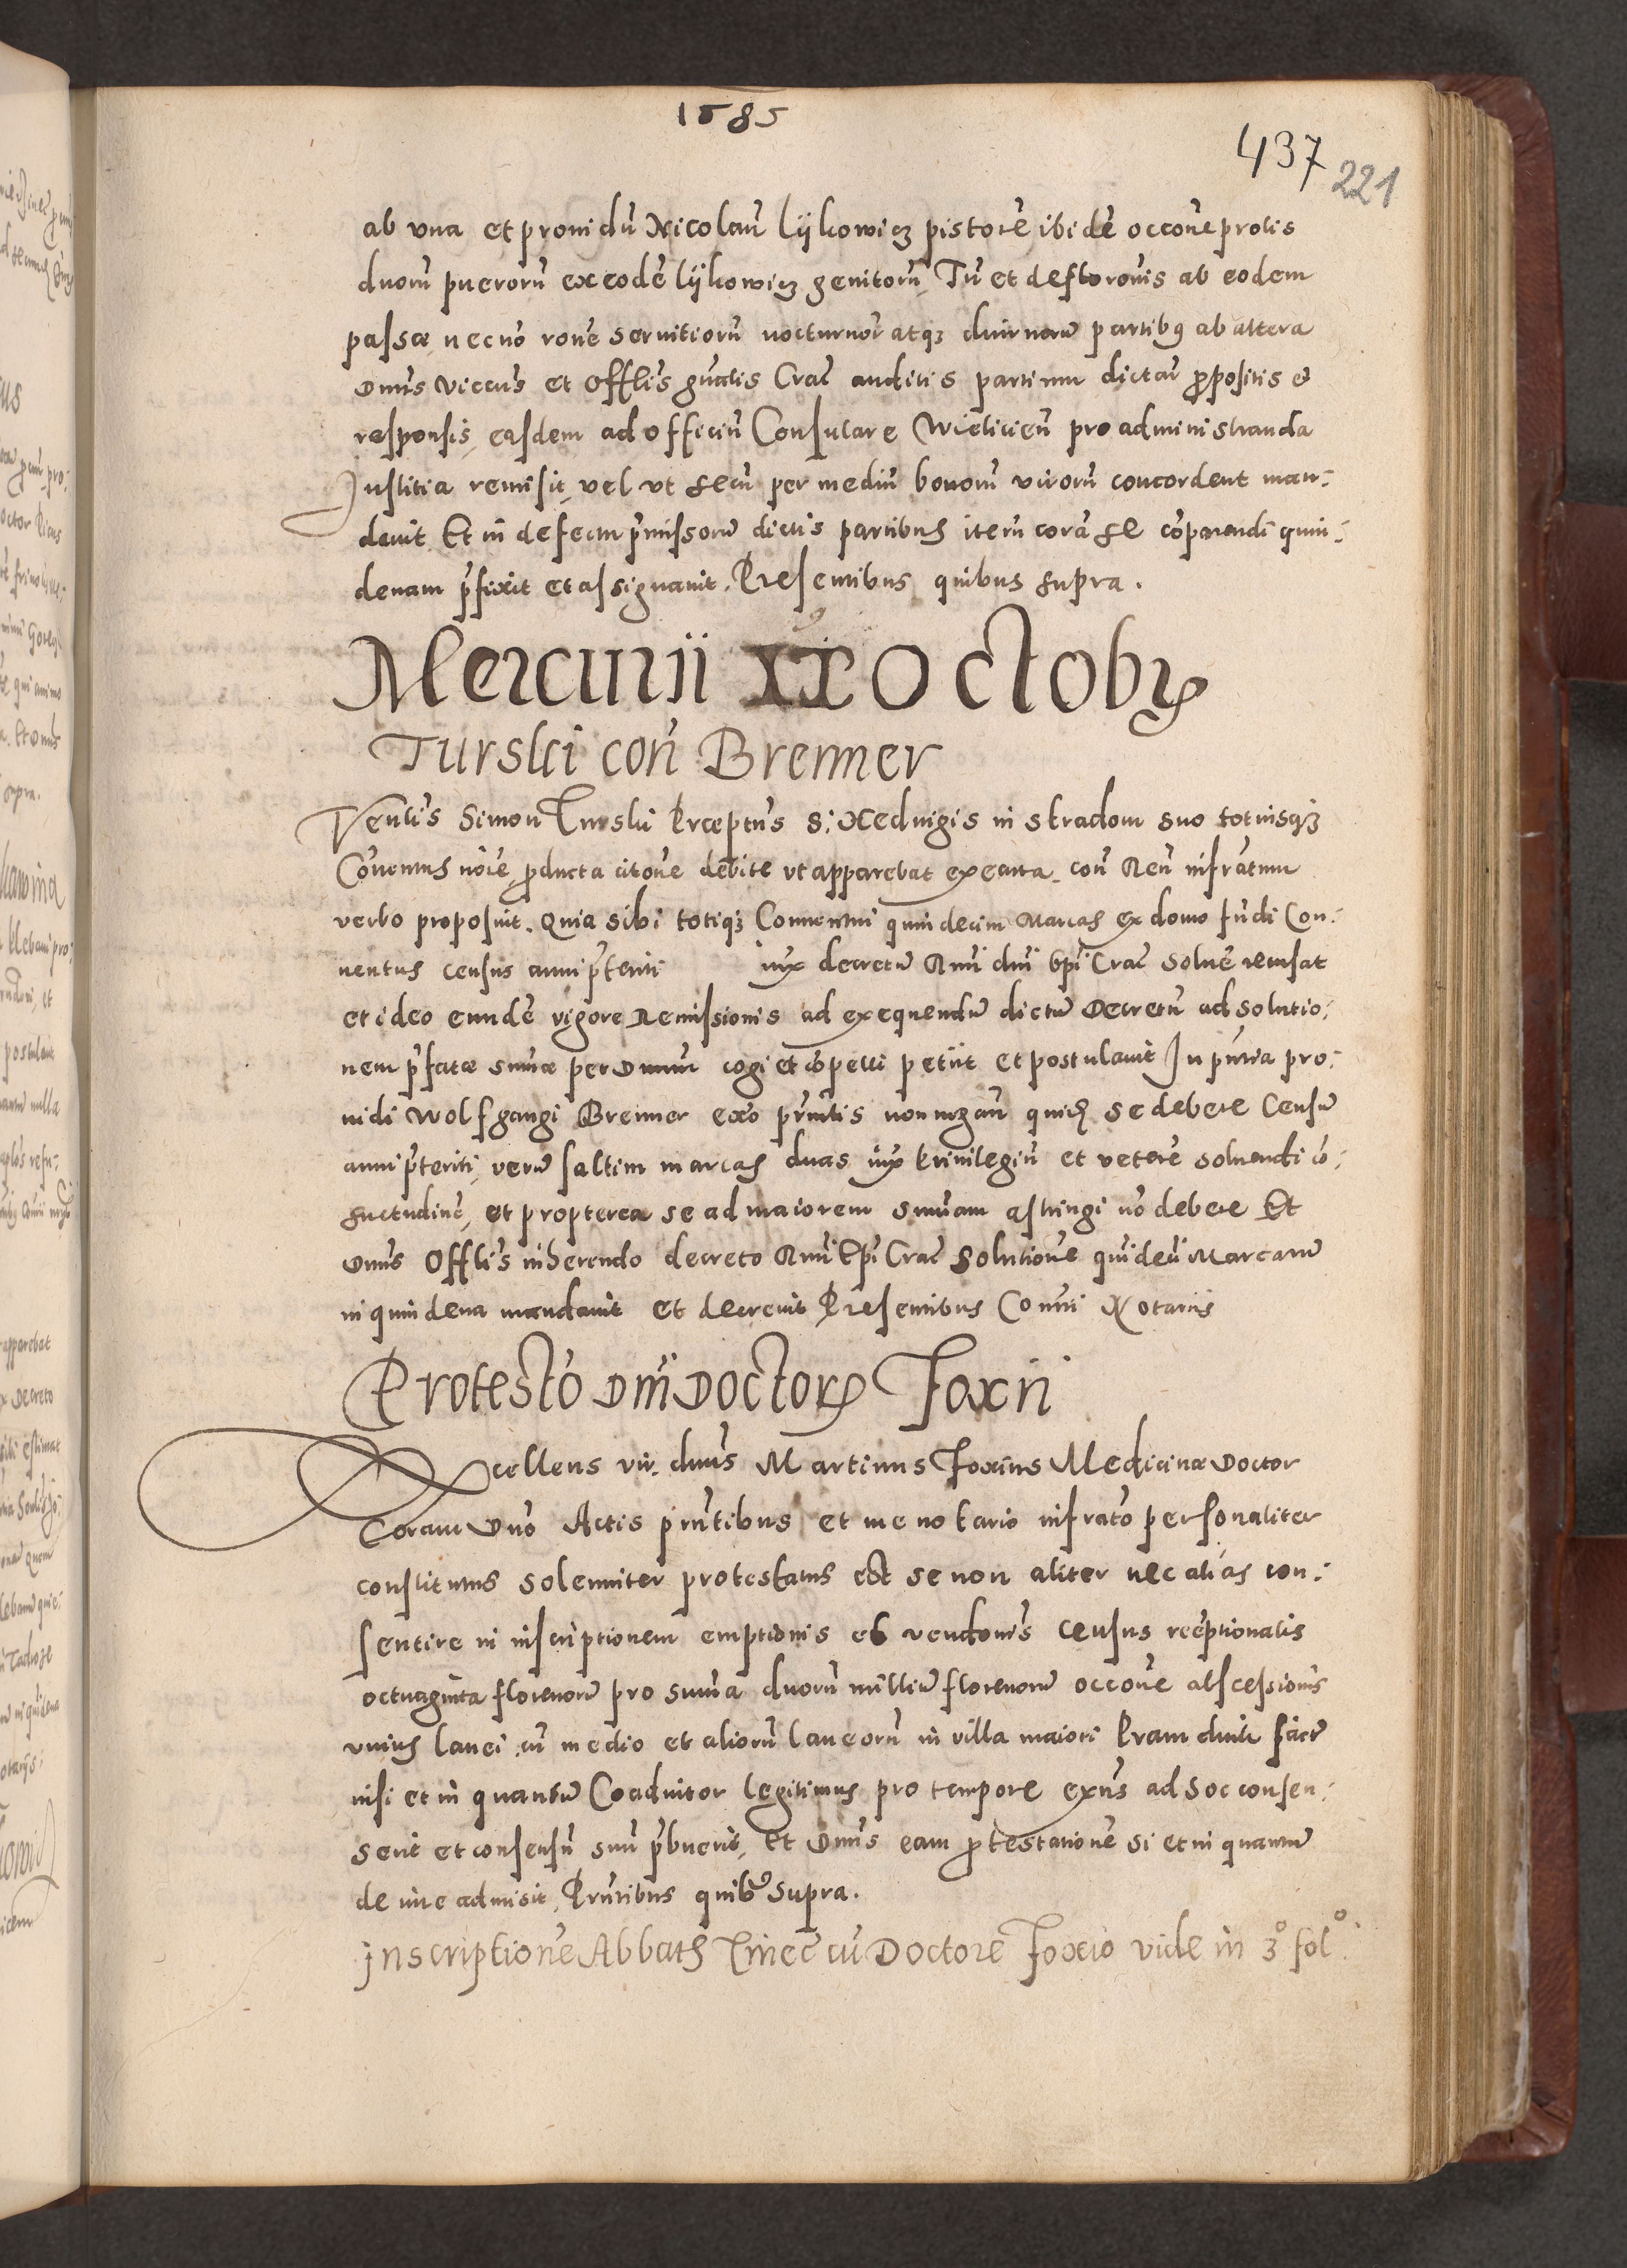 1585
437
221
ab vna et prouidũ Nicolaũ Lÿkowicz pistorẽ ibidẽ occoñe prolis
duorũ puerorũ ex eodẽ Lÿkowicz genitorũ, Tũ et defloroñis ab eodem
passæ, necnõ roñe seruitiorũ nocturnor̃ atqz diurnorũ partibq ab altera
Dnũs Viccũs et Offlĩs gñalis Crac̃ auditis partium dictar̃ ꝓpositis et
responsis, easdem ad officiũ Consulare Wielicieñ pro administranda
Justitia remisit, vel vt secũ per mediũ bonorũ virorũ concordent man:
dauit Et in defectu p̃missorũ dictis partibus iterũ corã se cõparendi quin:
denam p̃fixit et assignauit, Presentibus quibus supra.
Mercurii XX Octobr̃
Turski con̄ Brenner
Venlĩs Simon Turski Preeptũs S: Hedvigis in Stradom suo totiusqz
Cõuentus nõie ꝓducta citoñe debite vt apparebat executa, con̄ Reũ infratum
verbo proposuit, Quia sibi totiqz Conuentui quindecim Marcas ex domo fũdi Con:
uentus census anni p̃teriti iux decretũ Rmĩ dnĩ Epĩ Crac̃ soluẽ recusat
et ideo eundẽ vigore Remissionis ad exequendũ dictũ Decretũ ad solutio:
nem p̃fatæ sum̃æ per Dnum cogi et cõpelli petiit et postulauit In p̃ntia pro:
uidi Wolfgangi Brenner exõ pr̃ntis non negan̄ quid se debere Censũ
anni p̃teriti, verũ saltim marcas duas iux Priuilegiũ et veterẽ soluendi cõ:
suetudinẽ, et propterea se ad maiorem sum̃am astringi nõ debere Et
Dnũs Offlĩs inherendo decreto Rmĩ Epĩ Crac̃ Solutionẽ quĩdeci Marcarũ
in quindena mandauit et decreuit Presentibus Com̃ni Notariis
Protesto Dnĩ Doctor̃ Foxii
Excellens vir dnũs Martinus Foxius Medicinæ Doctor
Coram Dnõ Actis pr̃ntibus et me notario infrato personaliter
constitutus solemniter protestatus est se non aliter nec aliàs con:
sentire in inscriptionem emptionis et vendonĩs Census reẽptionalis
octuaginta florenorũ pro sum̃a duorũ milliũ florenorũ occoñe abscessionis
vnius lanei cũ medio et aliorũ laneorũ in villa maiori Prandnik factũ
nisi et in quantũ Coadiutor legitimus pro tempore exñs ad hoc consen:
serit et consensũ suũ p̃buerit, Et Dnũs eam ꝓtestationẽ si et in quantũ
de iure admisit, Prñtibus quibq supra.
Inscriptionẽ Abbatis Tinec̃ cũ Doctore Foxio vide in 3º folº.